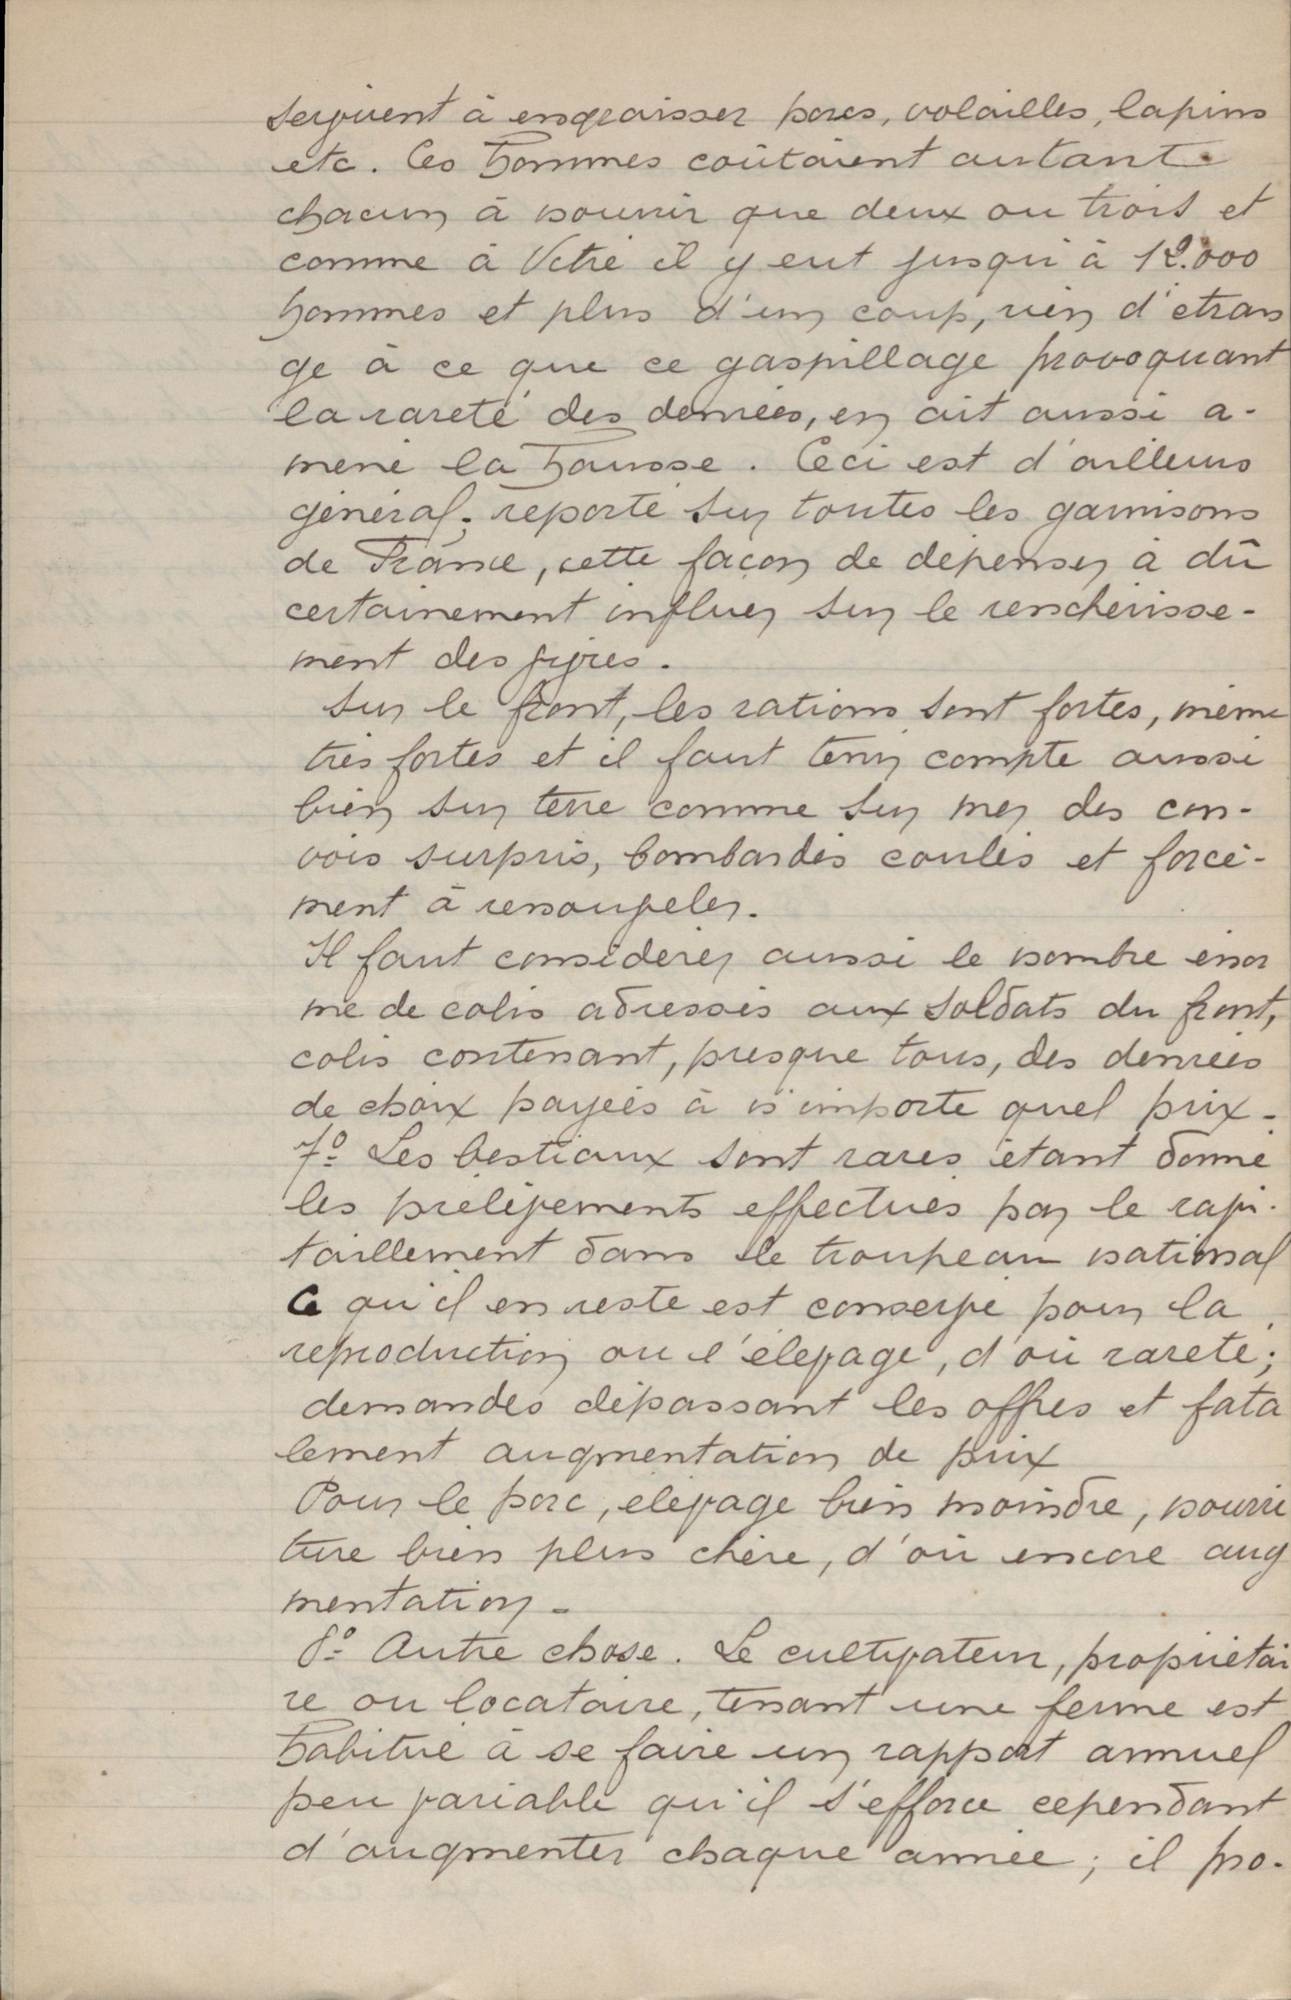 servirent à engraisser porcs, volailles, lapins
etc. Ces hommes coûtaient autant
chacun à nourrir que deux ou trois et
comme à Vitré il y eut jusqu'à 12.000
hommes et plus d'un coup, rien d'étran
ge à ce que ce gaspillage provoquant
la rareté des denrées, en ait aussi a-
mené la hausse. Ceci est d'ailleurs
général; reporté sur toutes les garnisons
de France, cette façon de dépenser à dû
certainement influer sur le renchérisse-
ment des vivres.
Sur le front, les rations sont fortes, même
très fortes et il faut tenir compte aussi
bien sur terre comme sur mer des con-
vois surpris, bombardés coulés et forcé-
ment à renouveler.
Il faut considérer aussi le nombre énor
me de colis adressés aux soldats du front,
colis contenant, presque tous, des denrées
de choix payées à n'importe quel prix-
7º Les bestiaux sont rares étant donné
les prélèvements effectués par le ravi-
taillement dans le troupeau national
Ce qu'il en reste est conservé pour la
reproduction ou l'élevage, d'où rareté;
demandes dépassant les offres et fata
lement augmentation de prix
Pour le porc, élevage bien moindre, nourri
ture bien plus chère, d'où encore aug
mentation-
8º Autre chose. Le cultivateur, propriétai
re ou locataire, tenant une ferme est
habitué à se faire un rapport annuel
peu variable qu'il s'efforce cependant
d'augmenter chaque année; il pro-